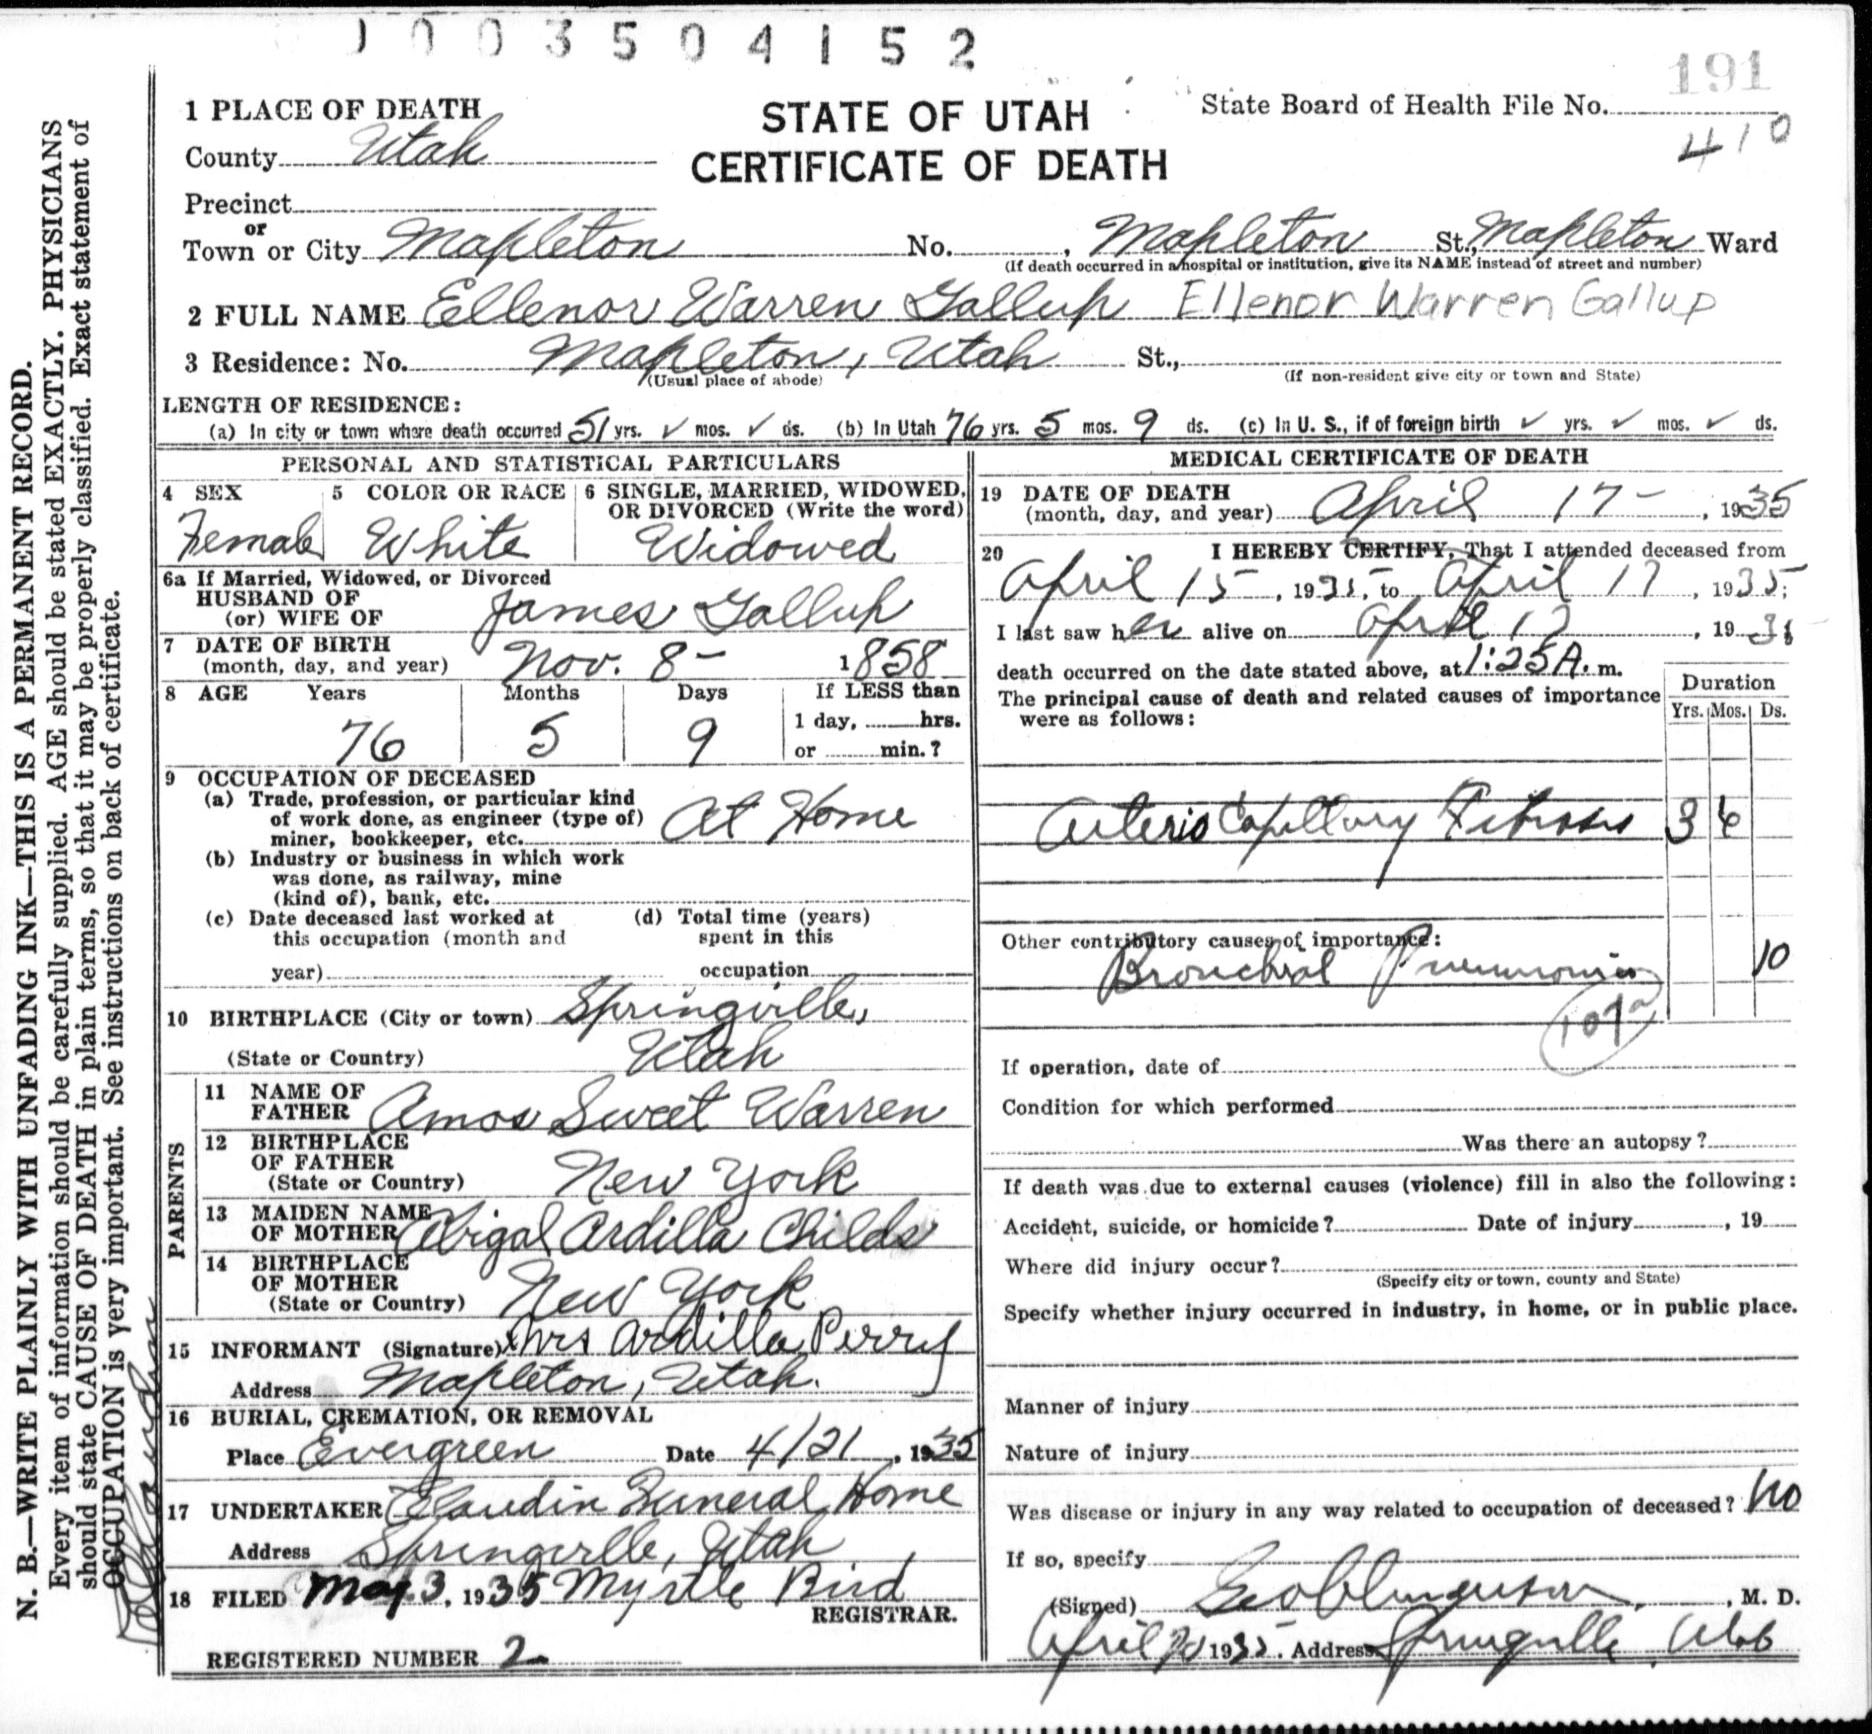 1003504152
191
1 PLACE OF DEATH
STATE OF UTAH
CERTIFICATE OF DEATH
State Board of Health File No.
410
County Utah
Precinct
or
Town or City Mapleton No. , Mapleton St., Mapleton Ward
(If death occurred in a hospital or institution, give its NAME instead of street and number)
2 FULL NAME Ellenor Warren Gallup Ellenor Warren Gallup
3 Residence: No. Mapleton, Utah St.,
(Usual place of abode) (If non-resident give city or town and State)
LENGTH OF RESIDENCE:
(a) In city or town where death occurred 51 yrs. ✓ mos. ✓ ds. (b) In Utah 76 yrs. 5 mos. 9 ds. (c) In U. S., if of foreign birth ✓ yrs. ✓ mos. ✓ ds.
PERSONAL AND STATISTICAL PARTICULARS
4 SEX
Female
5 COLOR OR RACE
White
6 SINGLE, MARRIED, WIDOWED,
OR DIVORCED (Write the word)
Widowed
6a If Married, Widowed, or Divorced
HUSBAND OF
(or) WIFE OF James Gallup
7 DATE OF BIRTH
(month, day, and year) Nov. 8- 1858
8 AGE Years Months Days If LESS than
1 day, hrs.
76 5 9 or min.?
9 OCCUPATION OF DECEASED
(a) Trade, profession, or particular kind
of work done, as engineer (type of)
miner, bookkeeper, etc. At Home
(b) Industry or business in which work
was done, as railway, mine
(kind of), bank, etc.
(c) Date deceased last worked at
this occupation (month and
year)
(d) Total time (years)
spent in this
occupation
10 BIRTHPLACE (City or town) Springville,
(State or Country) Utah
PARENTS
11 NAME OF
FATHER Amos Sweet Warren
12 BIRTHPLACE
OF FATHER
(State or Country) New York
13 MAIDEN NAME
OF MOTHER Abigal Ardilla Childs
14 BIRTHPLACE
OF MOTHER
(State or Country) New York
15 INFORMANT (Signature) Mrs Ardilla Perry
Address Mapleton, Utah.
16 BURIAL, CREMATION, OR REMOVAL
Place Evergreen Date 4/21, 1935
17 UNDERTAKER Claudin Funeral Home
Address Springville, Utah
18 FILED May 3, 1935 Myrtle Bird
REGISTRAR.
REGISTERED NUMBER 2
MEDICAL CERTIFICATE OF DEATH
19 DATE OF DEATH
(month, day, and year) April 17-, 1935
20 I HEREBY CERTIFY, That I attended deceased from
April 15-, 1935, to April 17, 1935;
I last saw her alive on April 17, 1935
death occurred on the date stated above, at 1:25 A. m.
The principal cause of death and related causes of importance
were as follows:
Duration
Yrs. Mos. Ds.
Arterio Capillary Fibrosis 3 6
Other contributory causes of importance:
Bronchial Pneumonia 10
107a
If operation, date of
Condition for which performed
Was there an autopsy?
If death was due to external causes (violence) fill in also the following:
Accident, suicide, or homicide? Date of injury , 19
Where did injury occur?
(Specify city or town, county and State)
Specify whether injury occurred in industry, in home, or in public place.
Manner of injury
Nature of injury
Was disease or injury in any way related to occupation of deceased? No
If so, specify
(Signed) , M. D.
April 1935. Address Springville, Utah
N. B.—WRITE PLAINLY WITH UNFADING INK—THIS IS A PERMANENT RECORD.
Every item of information should be carefully supplied. AGE should be stated EXACTLY. PHYSICIANS
should state CAUSE OF DEATH in plain terms, so that it may be properly classified. Exact statement of
OCCUPATION is very important. See instructions on back of certificate.